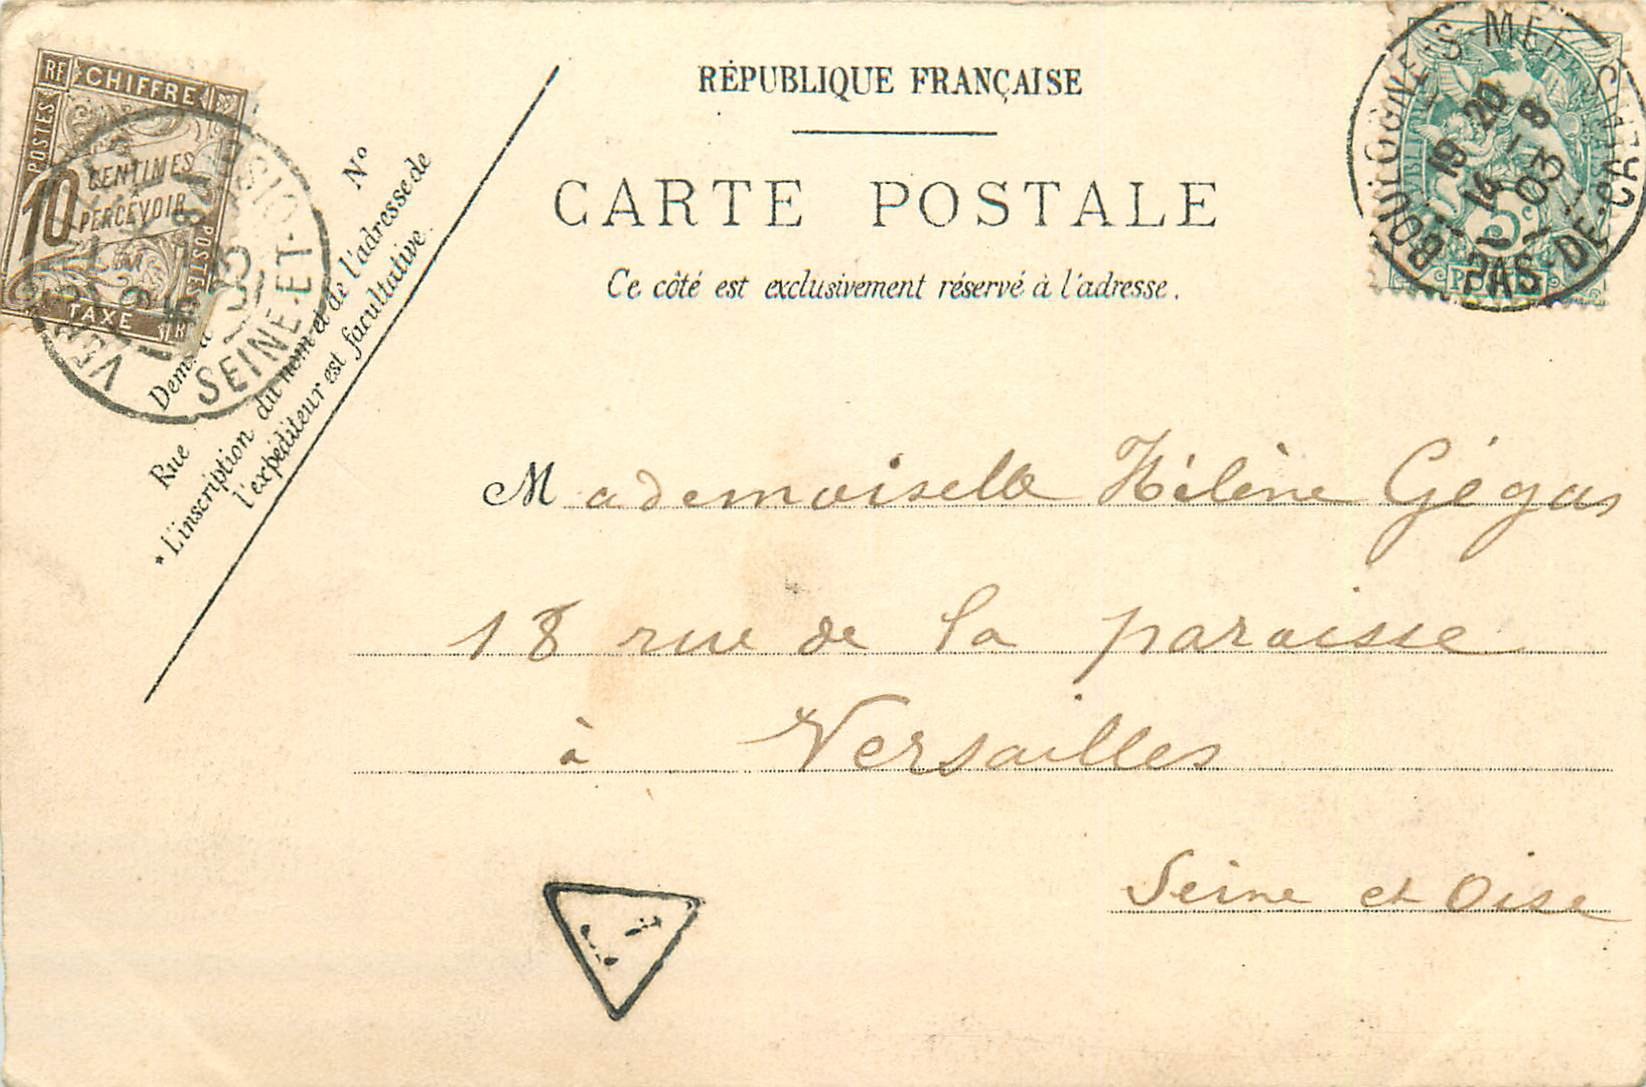 RF CHIFFRE
POSTES
10 CENTIMES
À PERCEVOIR
POSTES
TAXE
SEINE-ET-
RÉPUBLIQUE FRANÇAISE
CARTE POSTALE
Ce côté est exclusivement réservé à l'adresse.
BOULOGNE-S-MER
19 20
16 -8
03
PAS-DE-CALAIS
5c
N°
Rue
* L'inscription du nom et de l'adresse de
l'expéditeur est facultative.
Mademoiselle Hélène Gégas
18 rue de la paroisse
à Versailles
Seine et Oise